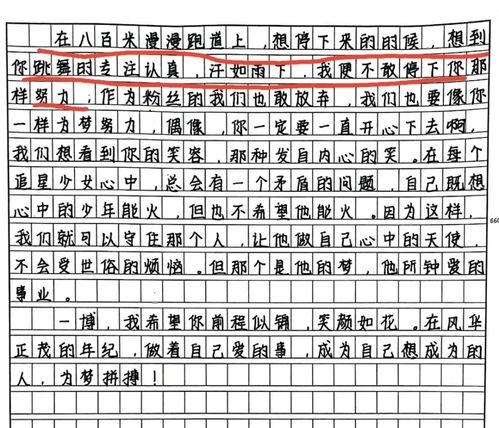 在八百米漫漫跑道上，想停下来的的时候，想到
你跳舞的专注认真，汗如雨下，我便不敢停下你那
样努力。作为粉丝的我们也敢放弃，我们也要像你
一样为梦努力，偶像，你一定要一直开心下去啊，
我们想看到你的笑容，那种发自内心的笑。在每个
追星少女心中，总会有一个矛盾的问题，自己既想
心中的少年能火，但也不希望他能火。因为这样，
我们就可以守住那个人，让他做自己心中的天使，
不会受世俗的烦恼。但那个是他的梦，他所钟爱的
事业。
一博，我希望你前程似锦，笑颜如花。在风华
正茂的年纪，做着自己爱的事，成为自己想成为的
人，为梦拼搏！
660